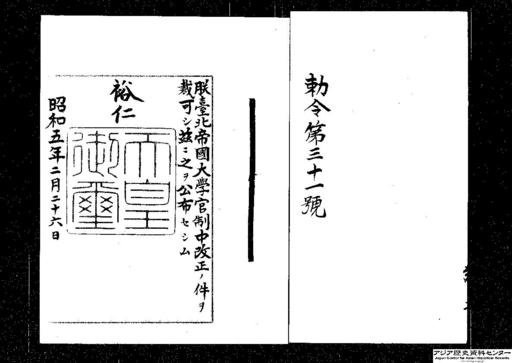 勅令第三十一號
朕臺北帝國大學官制中改正ノ件ヲ
裁可シ茲ニ之ヲ公布セシム
裕仁
天皇
御璽
昭和五年二月二十六日
アジア歴史資料センター
Japan Center for Asian Historical Records